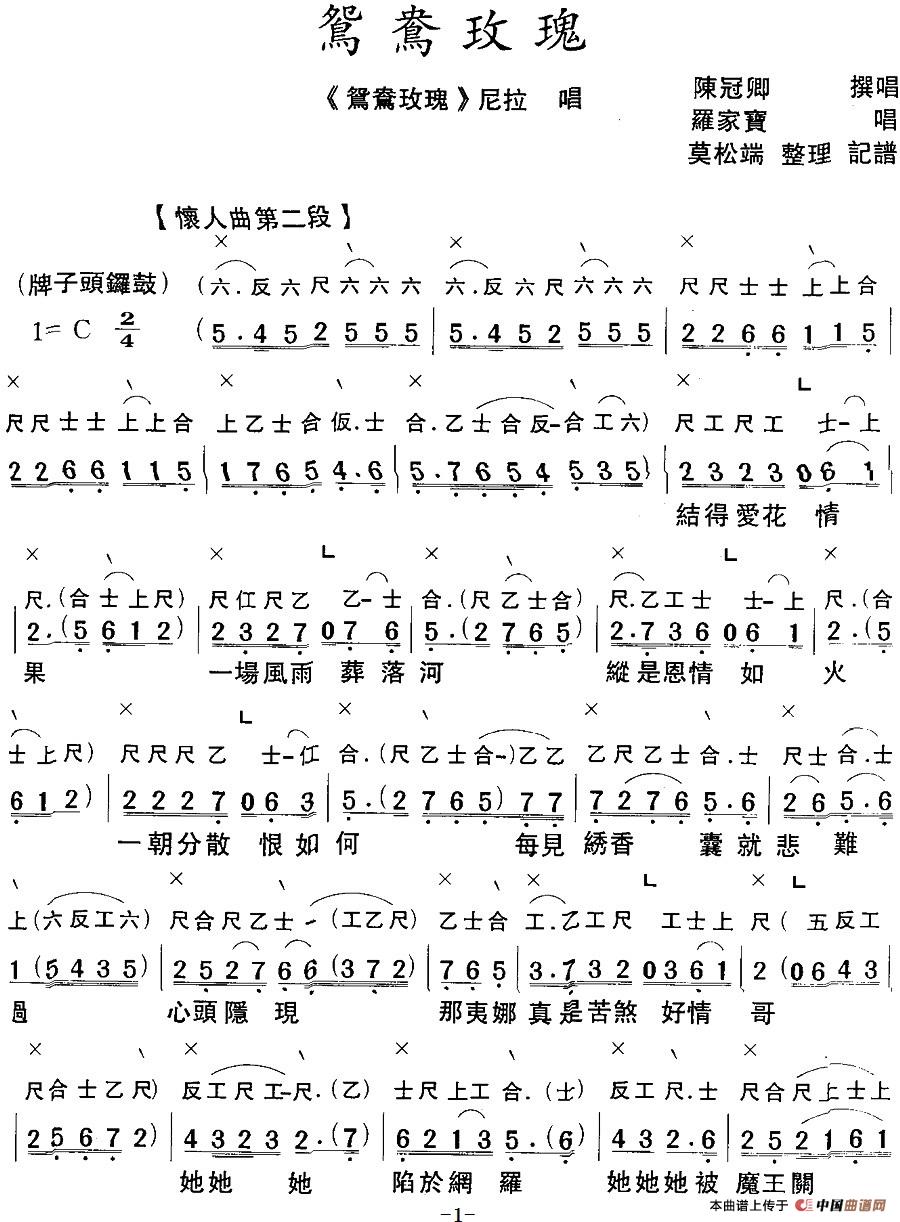 鴛鴦玫瑰
《鴛鴦玫瑰》尼拉 唱
陳冠卿 撰唱
羅家寶 唱
莫松端 整理 記譜
【懷人曲第二段】
(牌子頭鑼鼓) (六.反六尺六六六 六.反六尺六六六 尺尺士士上上合
1=C 2/4 (5.452 555 | 5.452 555 | 2266 115 |
尺尺士士上上合 上乙士合仮.士 合.乙士合反-合工六) 尺工尺工 士-上
2266 115 | 1765 4.6 | 5.7654 535) | 2323 06 1 |
結得愛花 情
尺.(合士上尺) 尺仜尺乙 乙-士 合.(尺乙士合) 尺.乙工士 士-上 尺.(合
2.(5 612) | 2327 07 6 | 5.(2 765) | 2.736 06 1 | 2.(5
果 一場風雨 葬落河 縱是恩情 如 火
士上尺) 尺尺尺乙 士-仜 合.(尺乙士合-)乙乙 乙尺乙士合.士 尺士合.士
612) | 2227 06 3 | 5.(2 765) 77 | 7276 5.6 | 265.6
一朝分散 恨如何 每見綉香 囊就悲 難
上(六反工六) 尺合尺乙士-(工乙尺) 乙士合 工.乙工尺 工士上 尺(五反工
1(5435) | 25276 6(372) | 765 | 3.732 0361 | 2(0643
過 心頭隱現 那夷娜真是苦煞 好情 哥
尺合士乙尺) 反工尺工-尺.(乙) 士尺上工 合.(士) 反工尺.士 尺合尺上士上
25672) | 4323 2.(7) | 6213 5.(6) | 432.6 | 252161 |
她她 她 陷於網 羅 她她她被 魔王關
-1-
本曲谱上传于 中国曲谱网